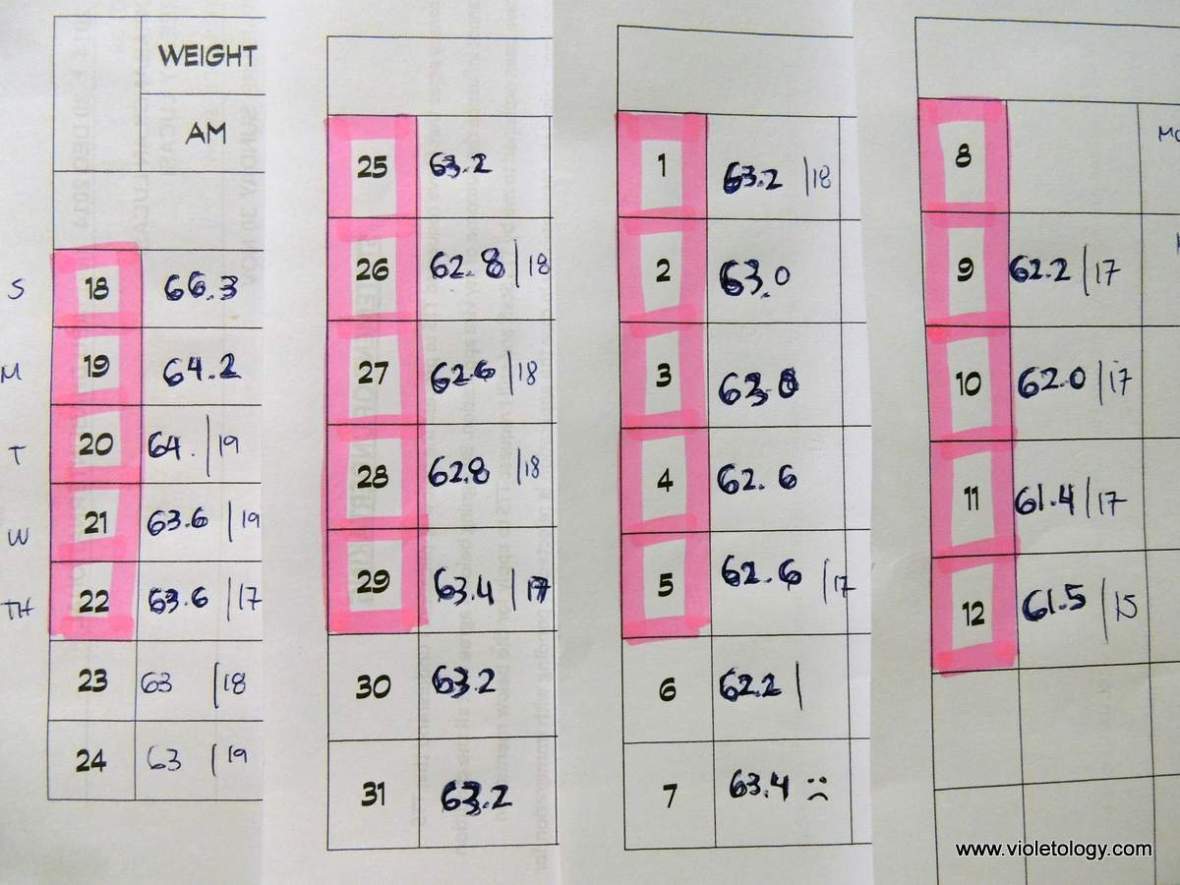 WEIGHT
AM
S 18 66.3
M 19 64.2
T 20 64. |19
W 21 63.6 |19
TH 22 63.6 |17
23 63 |18
24 63 |19
25 63.2
26 62.8 |18
27 62.6 |18
28 62.8 |18
29 63.4 |17
30 63.2
31 63.2
1 63.2 |18
2 63.0
3
4 62.6
5 62.6 |17
6 62.2 |
7 63.4 :(
8
9 62.2 |17
10 62.0 |17
11 61.4 |17
12 61.5 |15
www.violetology.com